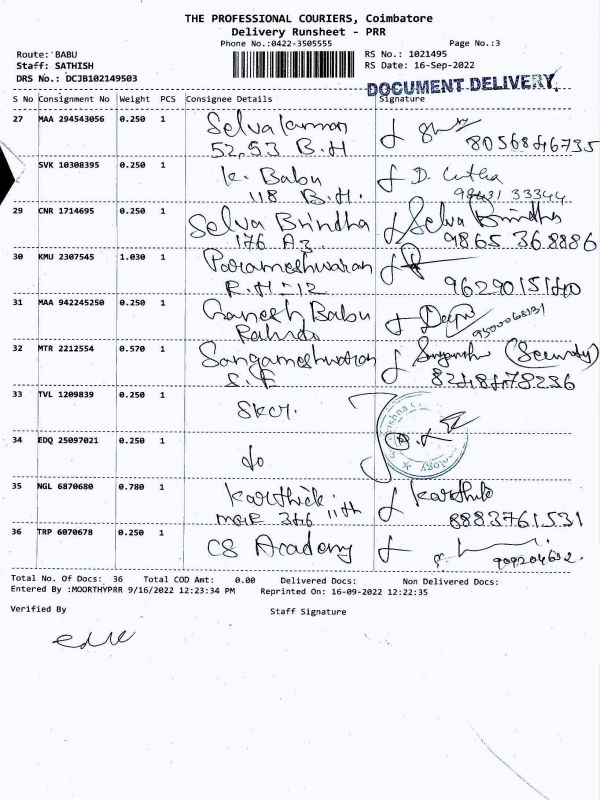 THE PROFESSIONAL COURIERS, Coimbatore
Delivery Runsheet - PRR
Phone No.:0422-3505555 Page No.:3
Route: BABU RS No.: 1021495
Staff: SATHISH RS Date: 16-Sep-2022
DRS No.: DCJB102149503
DOCUMENT DELIVERY
S No Consignment No Weight PCS Consignee Details Signature
27 MAA 294543056 0.250 1 Selva
52,53 B.H
SVK 10308395 0.250 1 K. Babu
118 B.H. 33344
29 CNR 1714695 0.250 1 Selva Brindha Selva Brindha
176 A3 9865 368886
30 KMU 2307545 1.030 1 Parameshwaran
R.H-12
31 MAA 942245250 0.250 1 Ganesh Babu
9500068131
32 MTR 2212554 0.570 1 Sangameshwaran (Security)
S.F
33 TVL 1209839 0.250 1
34 EDQ 25097021 0.250 1 do
35 NGL 6870680 0.780 1 Karthick Karthik
11th 8883761531
36 TRP 6070678 0.250 1 CS Academy
Total No. Of Docs: 36 Total COD Amt: 0.00 Delivered Docs: Non Delivered Docs:
Entered By :MOORTHYPRR 9/16/2022 12:23:34 PM Reprinted On: 16-09-2022 12:22:35
Verified By Staff Signature